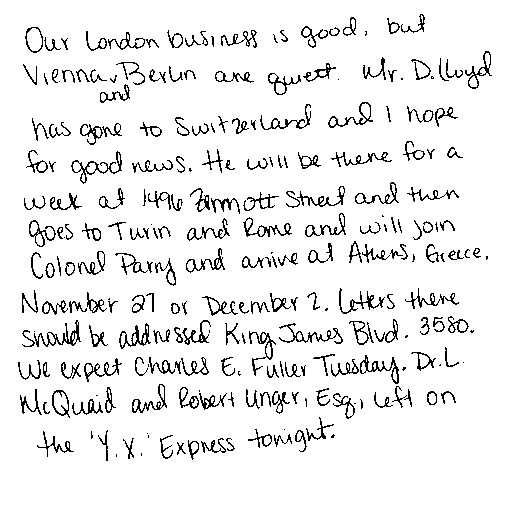 Our London business is good, but
Vienna and Berlin are quiett. Mr. D. Lloyd
has gone to Switzerland and I hope
for good news. He will be there for a
week at 1496 Zermott Street and then
goes to Turin and Rome and will join
Colonel Parry and arrive at Athens, Greece,
November 27 or December 2. Letters there
should be addressed King James Blvd. 3580.
We expect Charles E. Fuller Tuesday. Dr. L.
McQuaid and Robert Unger, Esq., left on
the 'Y. X.' Express tonight.